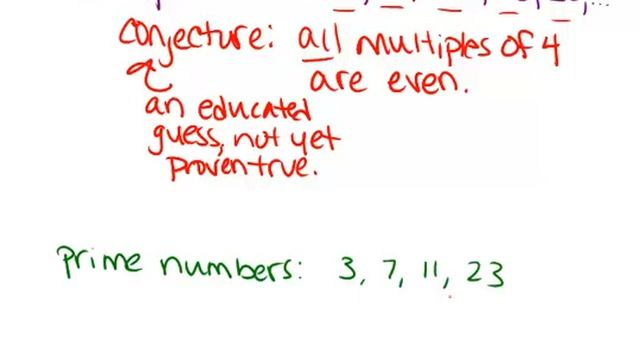 conjecture: all multiples of 4
are even.
an educated
guess, not yet
proven true.
prime numbers: 3, 7, 11, 23